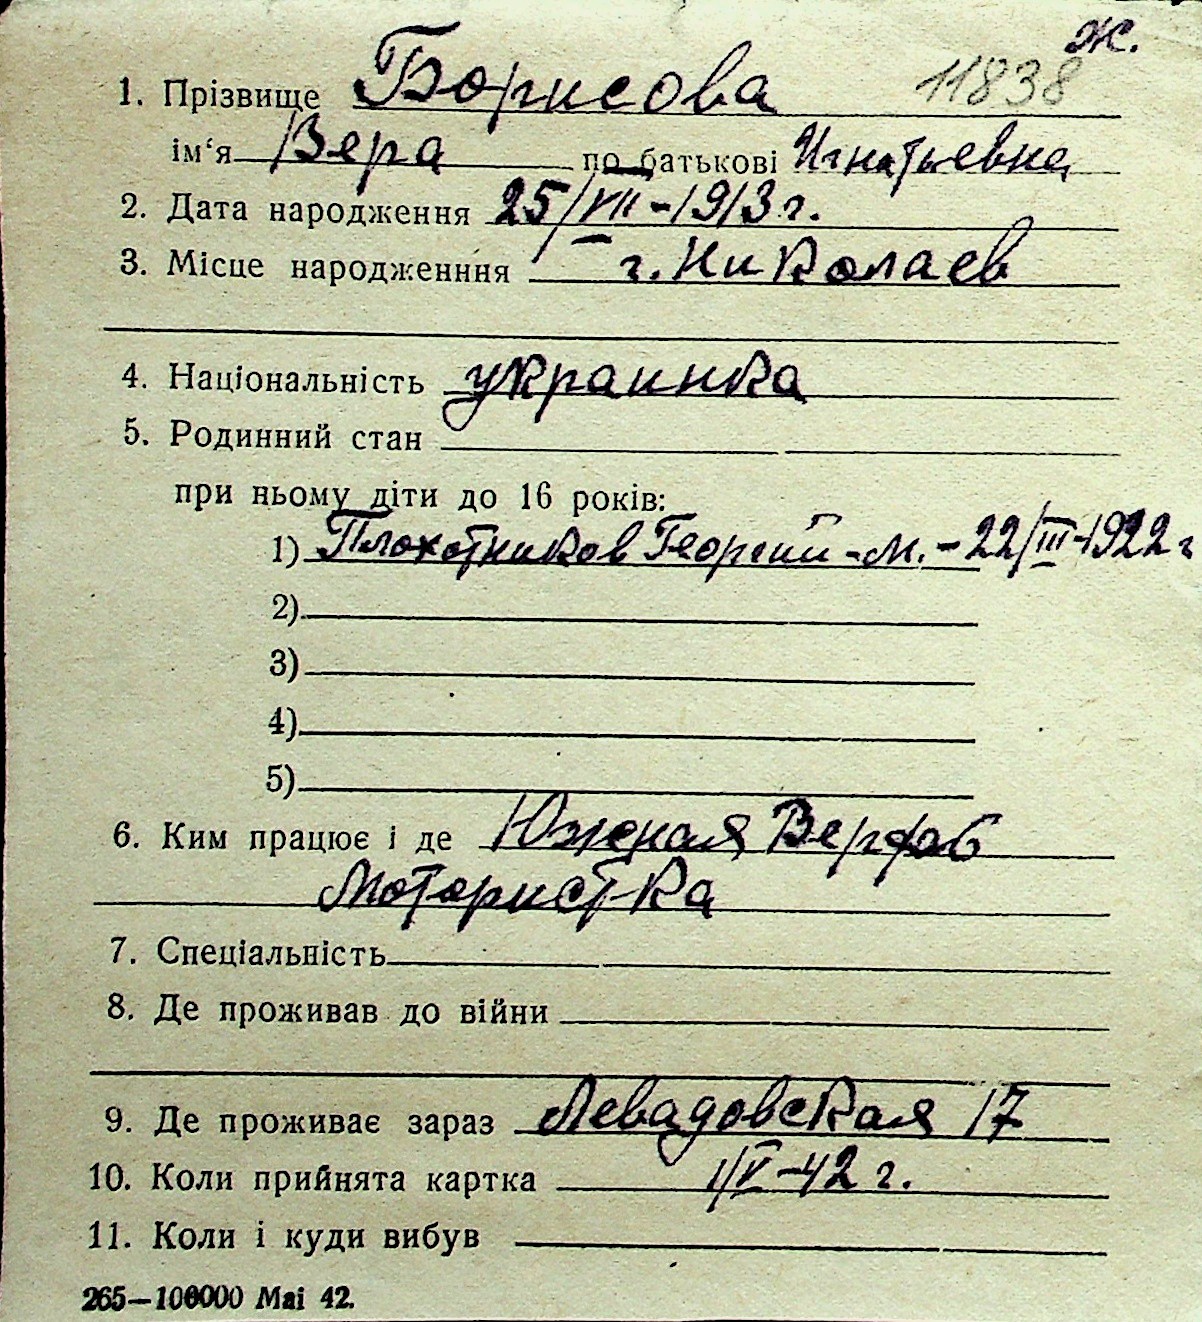 ж.
1. Прізвище Борисова 11838
ім'я Вера по батькові Игнатьевна
2. Дата народження 25/VII-1913 г.
3. Місце народженння г. Николаев
4. Національність украинка
5. Родинний стан
при ньому діти до 16 років:
1) Плохотников Георгий - м. - 22/III-1922 г
2)
3)
4)
5)
6. Ким працює і де Южная Верфь
Мотористка
7. Спеціальність
8. Де проживав до війни
9. Де проживає зараз Левадовская 17
10. Коли прийнята картка 1/V-42 г.
11. Коли і куди вибув
265—100000 Mai 42.